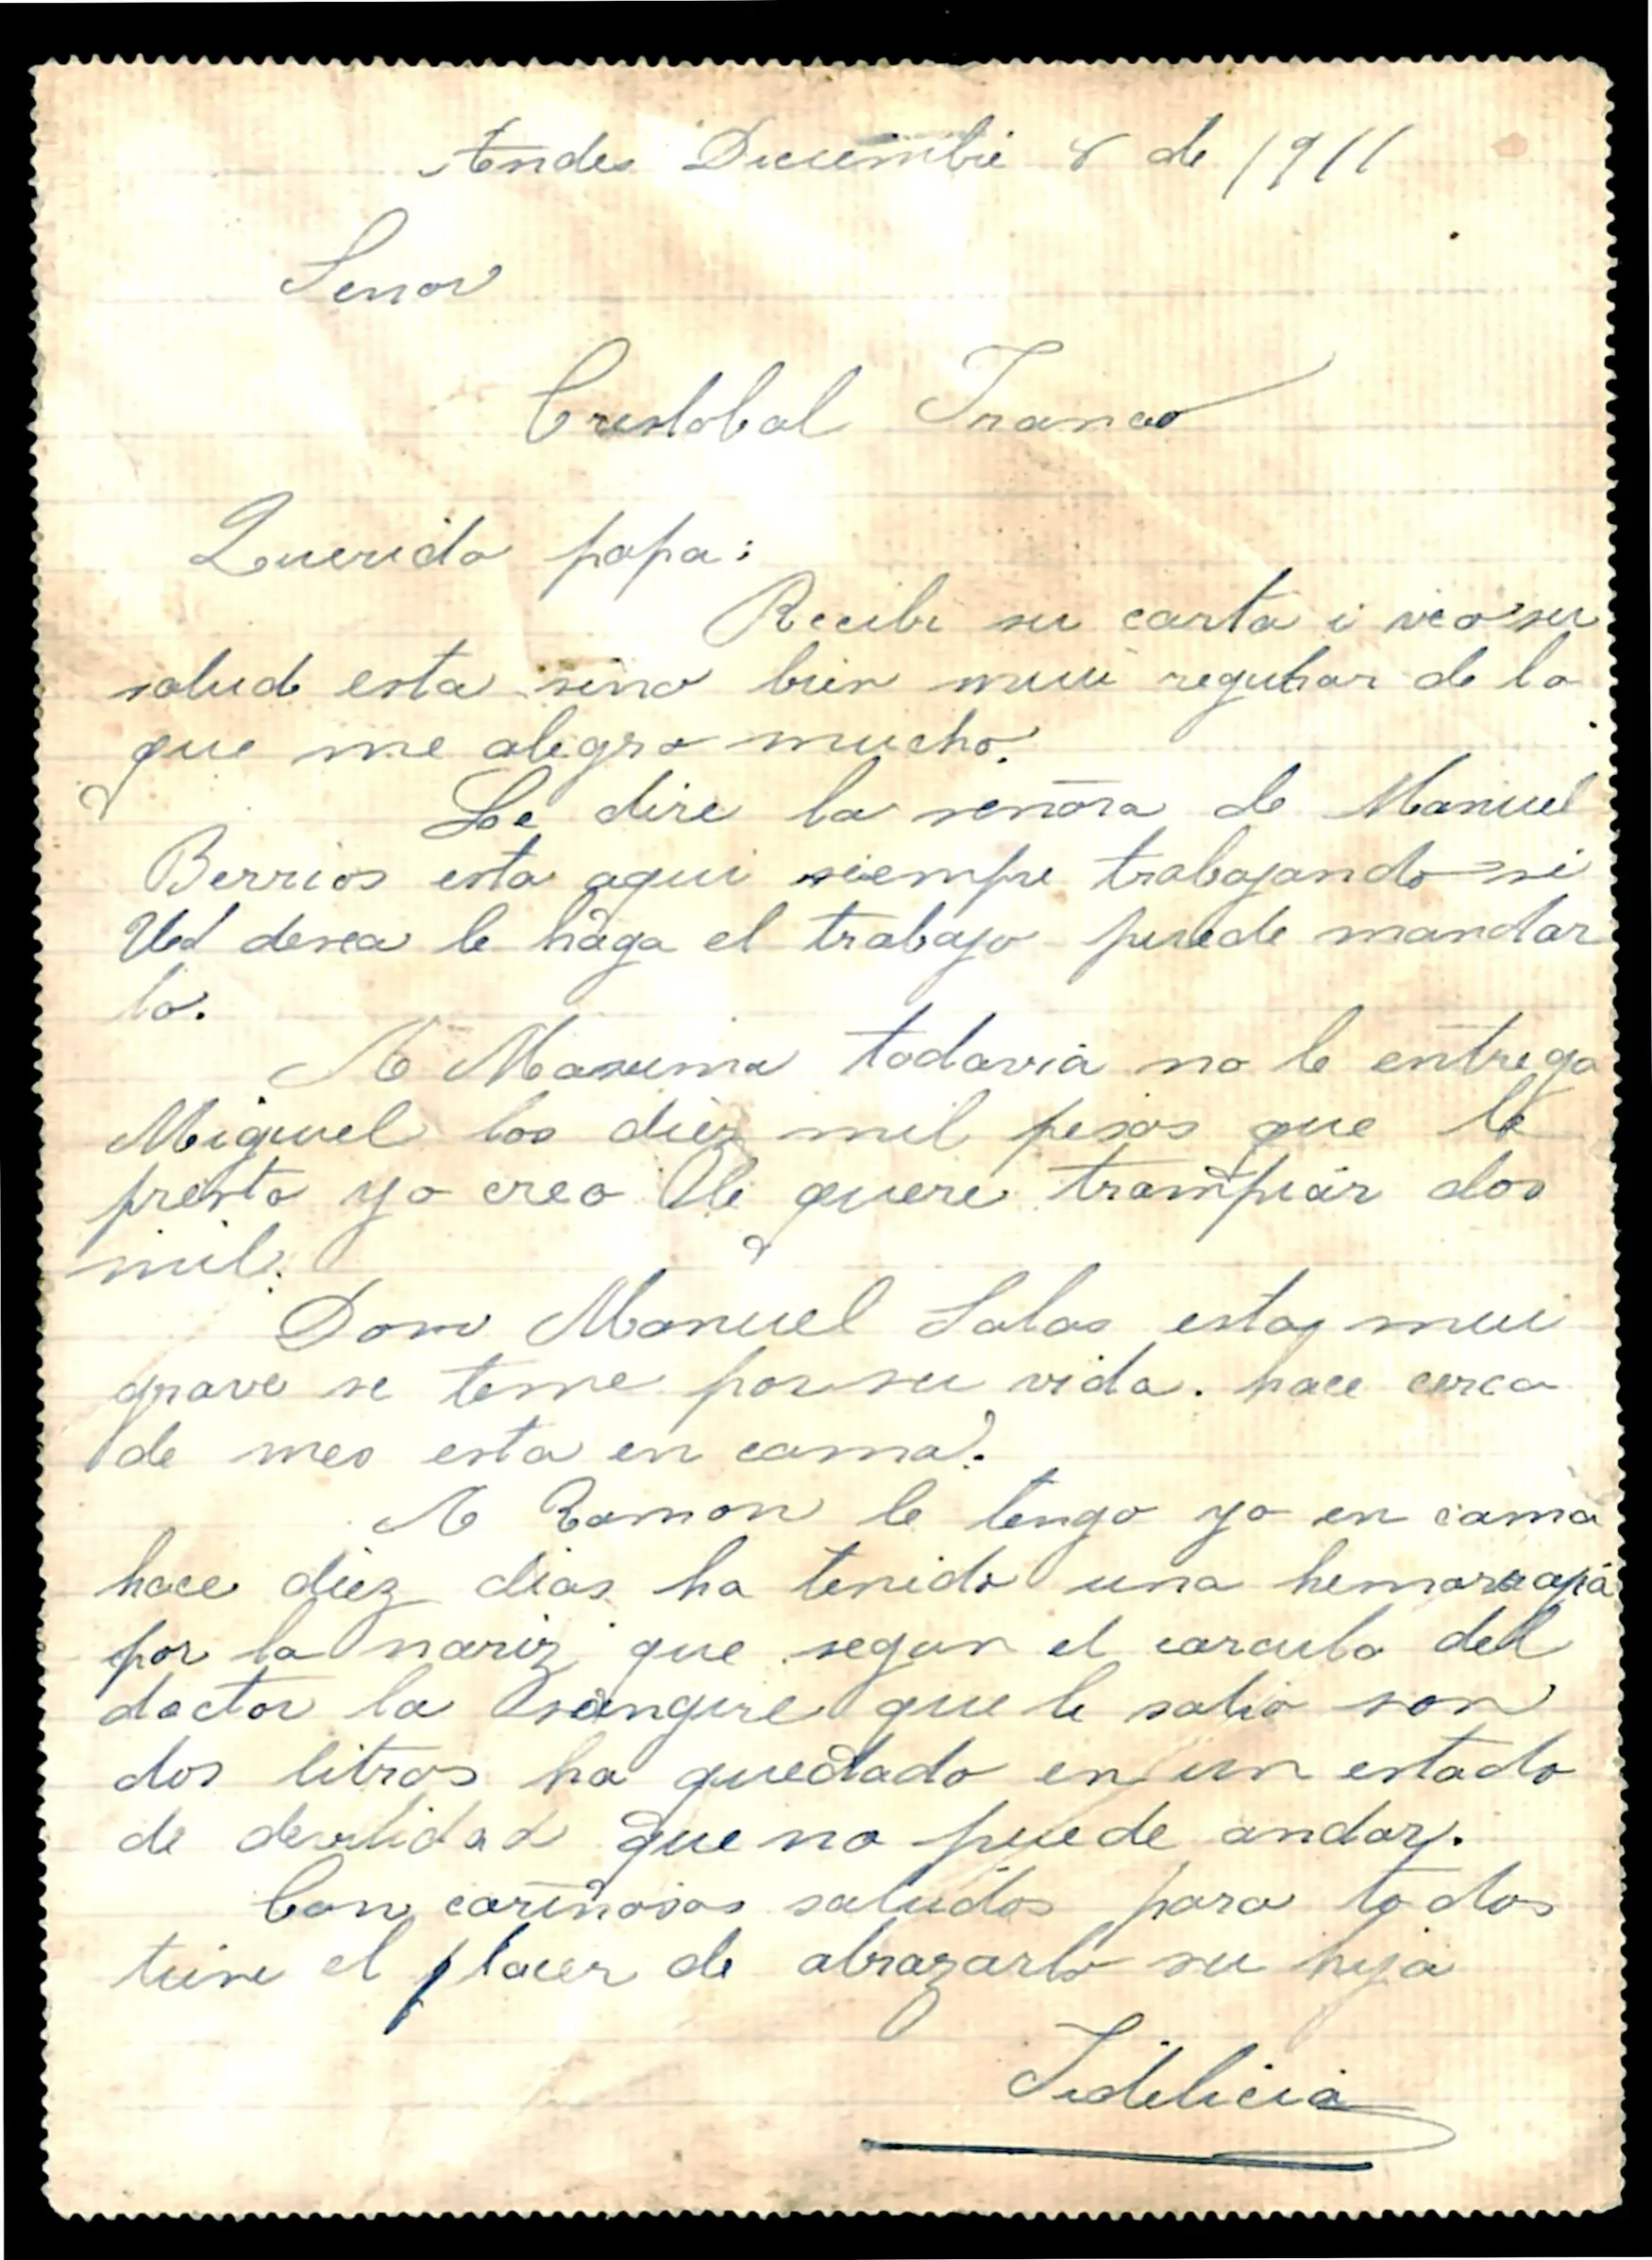 Andes Diciembre 8 de 1911
Señor
Cristobal Franco
Querido papa:
Recibi su carta i veo su
salud esta sino bien mui regular de lo
que me alegro mucho.
Le dire la señora de Manuel
Berrios esta aqui siempre trabajando si
Ud desea le haga el trabajo puede mandar
lo.
A Maxima todavia no le entrega
Miguel los diez mil pesos que le
presto yo creo le quere trampiar dos
mil.
Don Manuel Salas esta mui
grave se teme por su vida. hace cerca
de mes esta en cama.
A Ramon le tengo yo en cama
hace diez dias ha tenido una
por la nariz que segun el carculo del
doctor la sangre que le salio son
dos litros ha quedado en un estado
de devilidad que no puede andar.
Con cariñosos saludos para todos
tiene el placer de abrazarlo su hija
Fidelicia